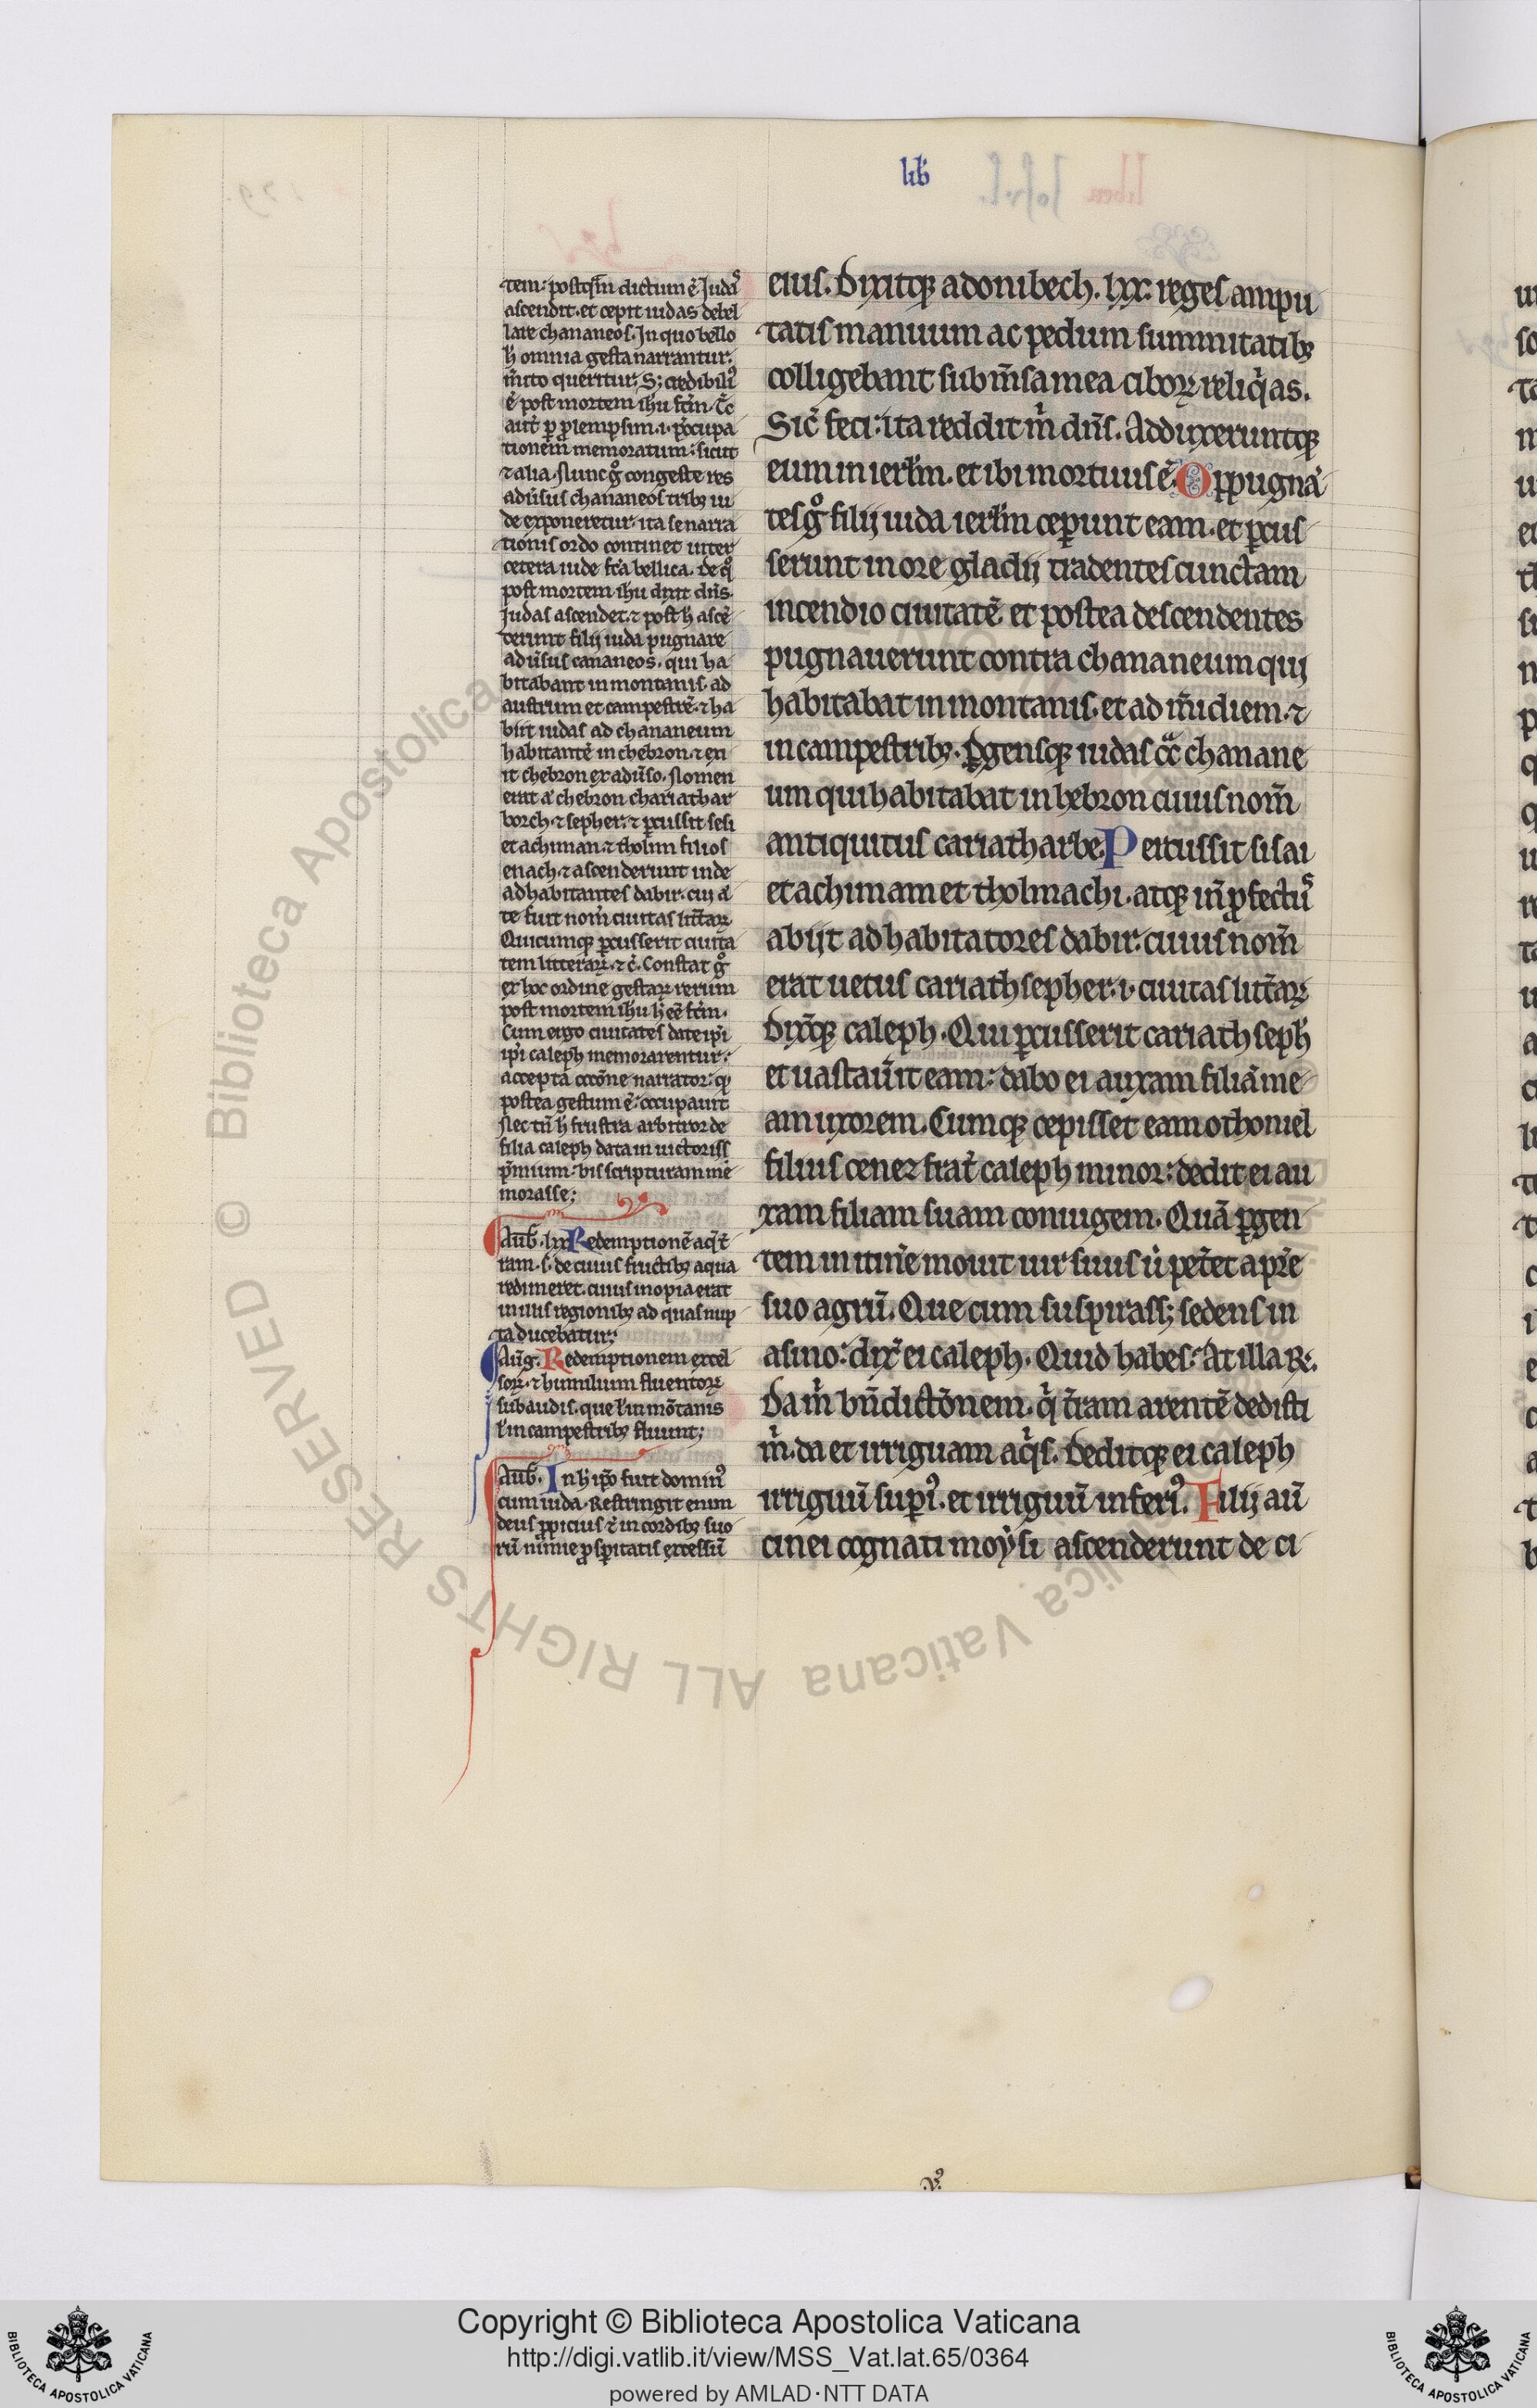 lib̄
tem: postq̃m dictum ē Judaꝰ
ascendit. et cepit iudas debel
lare chananeos. In quo bello
h̄ omnia gesta narrantur.
m̄ito queritur. S; credibiliꝰ
ē post mortem ihu fc̄m. 
tionem memoratum: sicut
⁊ alia. Nunc g̊ congeste res
adūsus chananeos tribꝫ iu
de exponeretur. ita se narra
tionis ordo continet inter
cetera iude fc̄a bellica. de qͦ
post mortem ihu dixit dn̄s.
Judas ascendet. ⁊ post h̄ ascē
derunt filij iuda pugnare
adūsus cananeos. qui ha
bitabant in montanis. ad
austrum et campestrē. ⁊ ha
biit iudas ad chananeum
habitantē in chebron. ⁊ en
it chebron ex adūso. Nomen
erat ā chebron chariathar
borch. ⁊ sepher. ⁊ ꝑcussit sesi
et achiman. ⁊ tholim filios
enach. ⁊ ascenderunt inde
ad habitantes dabir. cui ā
te fuit nom̄ ciuitas litt̄aꝝ
Quicumqꝫ ꝑcusserit ciuita
tem litteraꝝ. ⁊ c̄. Constat g̊
ex hoc ordine gestaꝝ rerum
post mortem ihu h̄ eē fc̄m.
Cum ergo ciuitates date ip̄i
ip̄i caleph memorarentur:
accepta occōne narrator: qꝫ
postea gestum ē: occupauit
Nec tn̄ h̄ frustra arbitror de
filia caleph data in uictoriss
p̄mium: bis scripturam me
morasse;
Aub̄. lxx Redemptionē aq̄ t̄
ram. s. de cuius fructibꝫ aqua
redimeret. cuius inopia erat
in iuis regionibꝫ ad quas nup
ta ducebatur;
Aūg. Redemptionem excel
soꝝ. ⁊ humilium fluentoꝝ
subaudis. que ł in mōtanis
ł in campestribꝫ fluunt;
Aub̄. In h̄ ip̄o fuit dominꝰ
cum iuda. Restringit enim
deus ꝓpicius ⁊ in cordibꝫ suo
rū nimie ꝓsꝑitatis excessū
eius. Dixitqꝫ adonibech. lxx. reges ampu
tatis manuum ac pedum summitatibꝫ
colligebant sub m̄sa mea ciboꝝ reliq̇as.
Sic̄ feci: ita reddit m̄ dn̄s. Adduxeruntqꝫ
eum in ierłm. et ibi mortuus ē. Oppugnā
tes g̊ filij iuda ierłm ceperunt eam. et ꝑcus
serunt in ore gladij tradentes cunctam
incendio ciuitatē. et postea descendentes
pugnauerunt contra chananeum qui
habitabat in montanis. et ad m̄idiem. ⁊
in campestribꝫ. Ꝑgensqꝫ iudas cc̄ chanane
um qui habitabat in hebron cuius nom̄
antiquitus cariatharbe. Percussit sisai
et achimam et tholmachi. atqꝫ in̄ ꝓfectuꝰ
abijt ad habitatores dabir. cuius nom̄
erat uetus cariathsepher. i. ciuitas litt̄aꝝ
Dix̄qꝫ caleph. Qui ꝑcusserit cariathseph̄
et uastau̅it eam: dabo ei auxam filiā me
am uxorem. Cumqꝫ cepisset eam othoniel
filius cenez frat̄ caleph minor: dedit ei au
xam filiam suam coniugem. Quā ꝑgen
tem in itin̄e mouit uir suus ū pet̄et a pr̄e
suo agrū. Que cum suspirass; sedens in
asino: dix̄ ei caleph. Quid habes? At illa R.
Da m̄ bn̄dictōnem. q̇ t̄ram arentē dedisti
m̄. da et irriguam aq̇s. Deditqꝫ ei caleph
irriguū suꝑiꝰ. et irriguū inferiꝰ. Filij aū
cinei cognati moysi ascenderunt de ci
v°
Copyright © Biblioteca Apostolica Vaticana
http://digi.vatlib.it/view/MSS_Vat.lat.65/0364
powered by AMLAD·NTT DATA
BIBLIOTECA APOSTOLICA VATICANA
BIBLIOTECA APOSTOLICA VATICANA
© Biblioteca Apostolica Vaticana ALL RIGHTS RESERVED